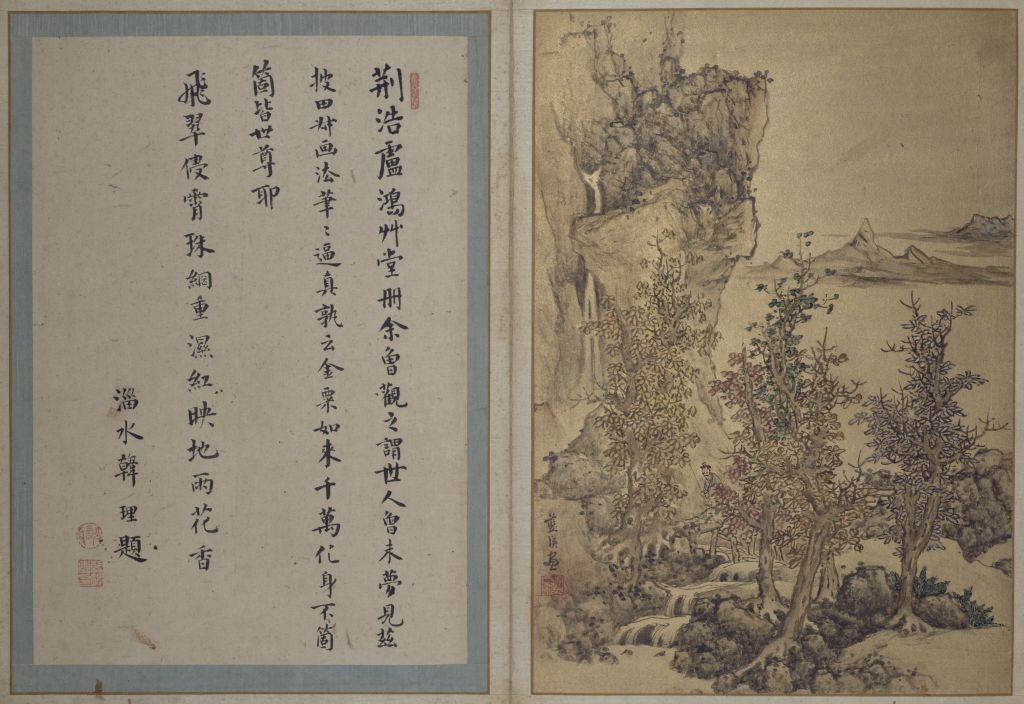 荆浩盧鴻艸堂冊余曾觀之謂世人曾未夢見茲
披田叔画法筆〻逼真孰云金粟如来千萬化身不箇
箇皆世尊耶
飛翠侵霄珠網重濕紅映地雨花香
淄水韓理題
藍瑛画